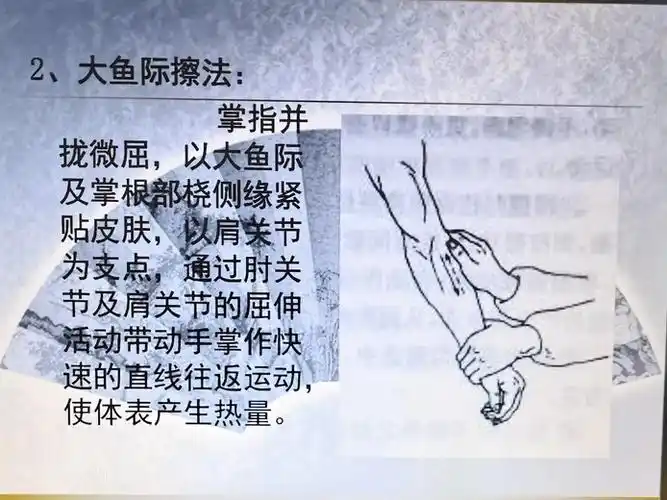 2、大鱼际擦法：
掌指并
拢微屈，以大鱼际
及掌根部桡侧缘紧
贴皮肤，以肩关节
为支点，通过肘关
节及肩关节的屈伸
活动带动手掌作快
速的直线往返运动，
使体表产生热量。